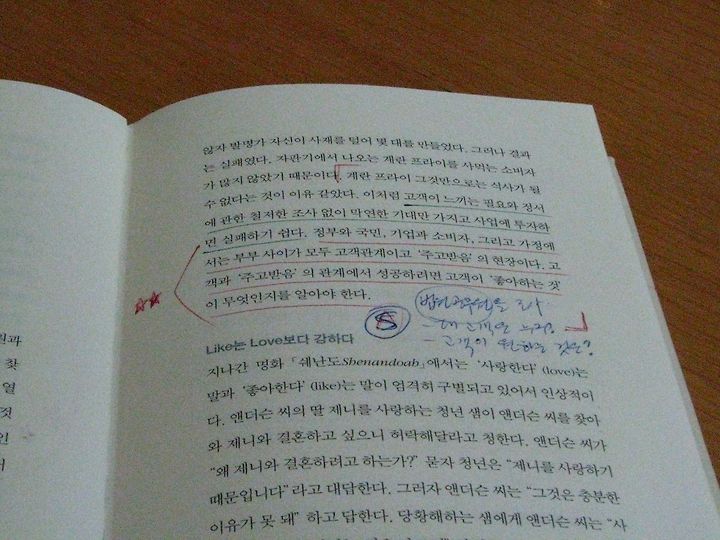 않자 발명가 자신이 사재를 털어 몇 대를 만들었다. 그러나 결과
는 실패였다. 자판기에서 나오는 계란 프라이를 사먹는 소비자
가 많지 않았기 때문이다. 계란 프라이 그것만으로는 식사가 될
수 없다는 것이 이유 같았다. 이처럼 고객이 느끼는 필요와 정서
에 관한 철저한 조사 없이 막연한 기대만 가지고 사업에 투자하
면 실패하기 쉽다. 정부와 국민, 기업과 소비자, 그리고 가정에
서는 부부 사이가 모두 고객관계이고 ‘주고받음’의 현장이다. 고
객과 ‘주고받음’의 관계에서 성공하려면 고객이 ‘좋아하는 것’
이 무엇인지를 알아야 한다.
- 내 고객은 누구?
- 고객이 원하는 것은?
Like는 Love보다 강하다
지나간 명화 「쉐난도Shenandoah」에서는 ‘사랑한다’(love)는
말과 ‘좋아한다’(like)는 말이 엄격히 구별되고 있어서 인상적이
다. 앤더슨 씨의 딸 제니를 사랑하는 청년 샘이 앤더슨 씨를 찾아
와 제니와 결혼하고 싶으니 허락해달라고 청한다. 앤더슨 씨가
“왜 제니와 결혼하려고 하는가?” 묻자 청년은 “제니를 사랑하기
때문입니다”라고 대답한다. 그러자 앤더슨 씨는 “그것은 충분한
이유가 못 돼” 하고 답한다. 당황해하는 샘에게 앤더슨 씨는 “사
원과
찾
열
것
인